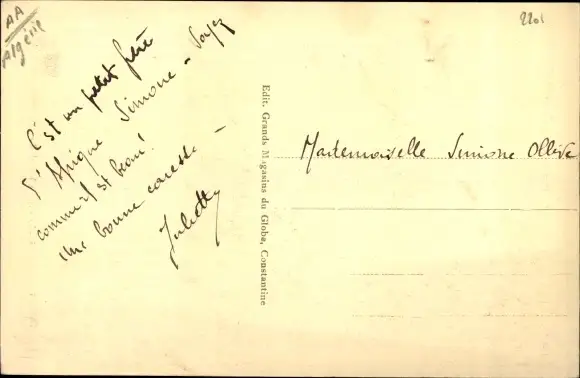 AA
Algérie
2201
C'est un petit frère
d'Afrique Simone - Voyez
comme il est beau!
Une bonne caresse -
Juliette
Edit. Grands Magasins du Globe, Constantine
Mademoiselle Simone Ollive